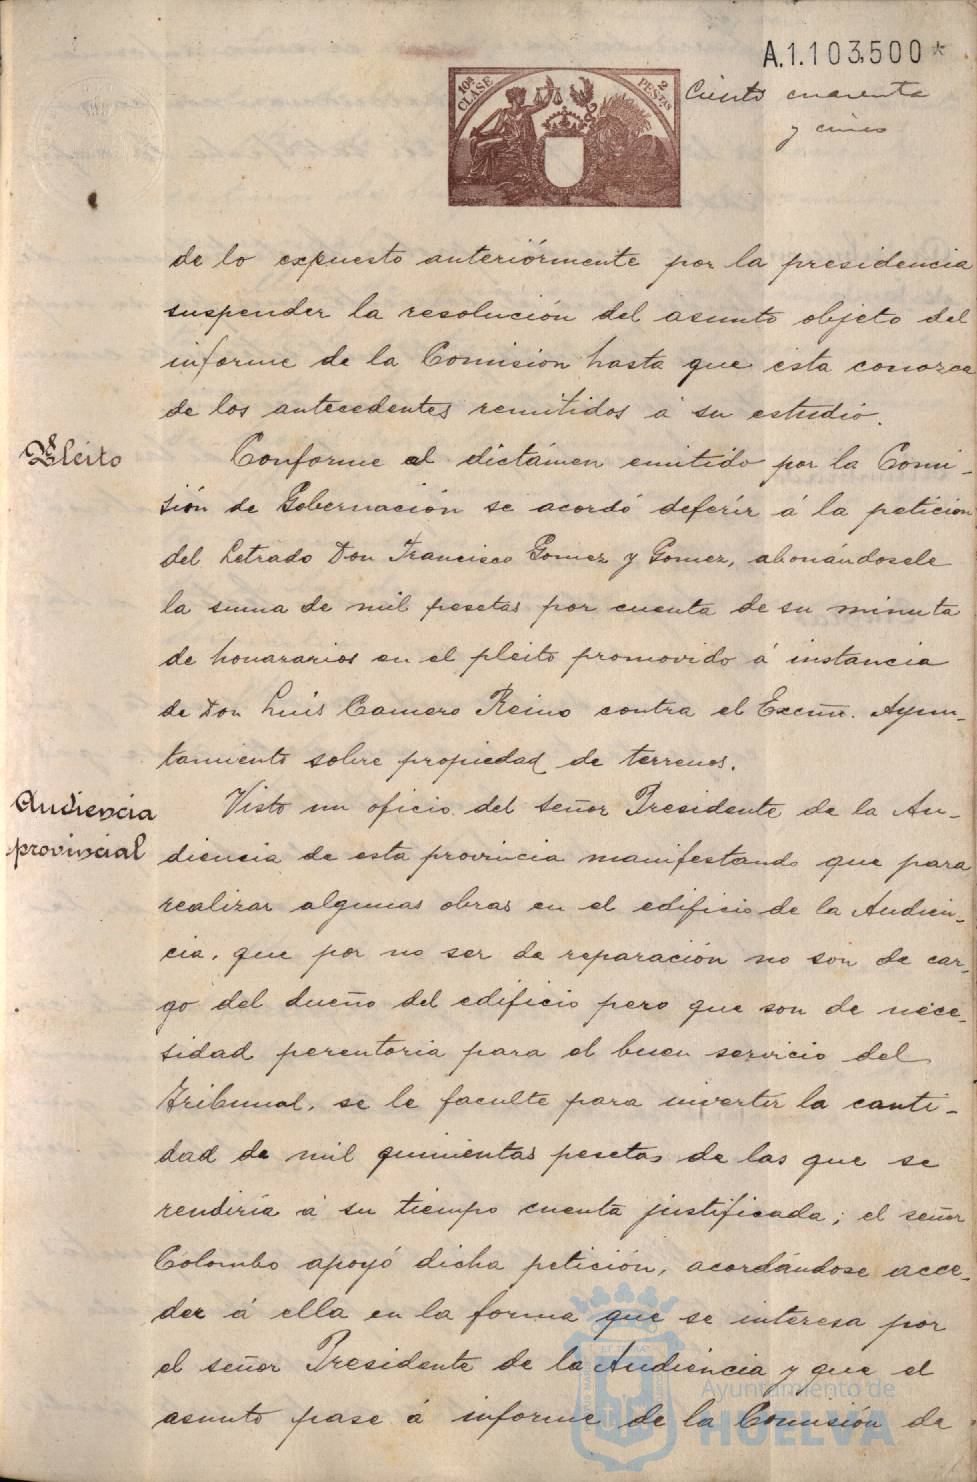 A.1.103,500*
10ª CLASE
2 PESETAS
Ciento cuarenta
y cinco
de lo expuesto anteriórmente por la presidencia
suspender la resolución del asunto objeto del
informe de la Comision hasta que esta conozca
de los antecedentes remitidos a su estudio.
Pleito
Conforme al dictámen emitido por la Comi-
sión de Gobernación se acordó deferir á la petición
del Letrado Don Francisco Gomez y Gomez, abonándosele
la suma de mil pesetas por cuenta de su minuta
de honararios en el pleito promovido á instancia
de Don Luis Camero Reino contra el Excmo. Ayun-
tamiento sobre propiedad de terrenos.
Audiencia
provincial
Visto un oficio del señor Presidente de la Au-
diencia de esta provincia manifestando que para
realizar algunas obras en el edificio de la Audien-
cia, que por no ser de reparación no son de car-
go del dueño del edificio pero que son de nece-
sidad perentoria para el buen servicio del
Tribunal, se le faculte para invertir la canti-
dad de mil quinientas pesetas de las que se
rendiría á su tiempo cuenta justificada; el señor
Colombo apoyó dicha petición, acordándose acce-
der á ella en la forma que se interesa por
el señor Presidente de la Audiencia y que el
asunto pase á informe de la Comisión de
Ayuntamiento de
HUELVA